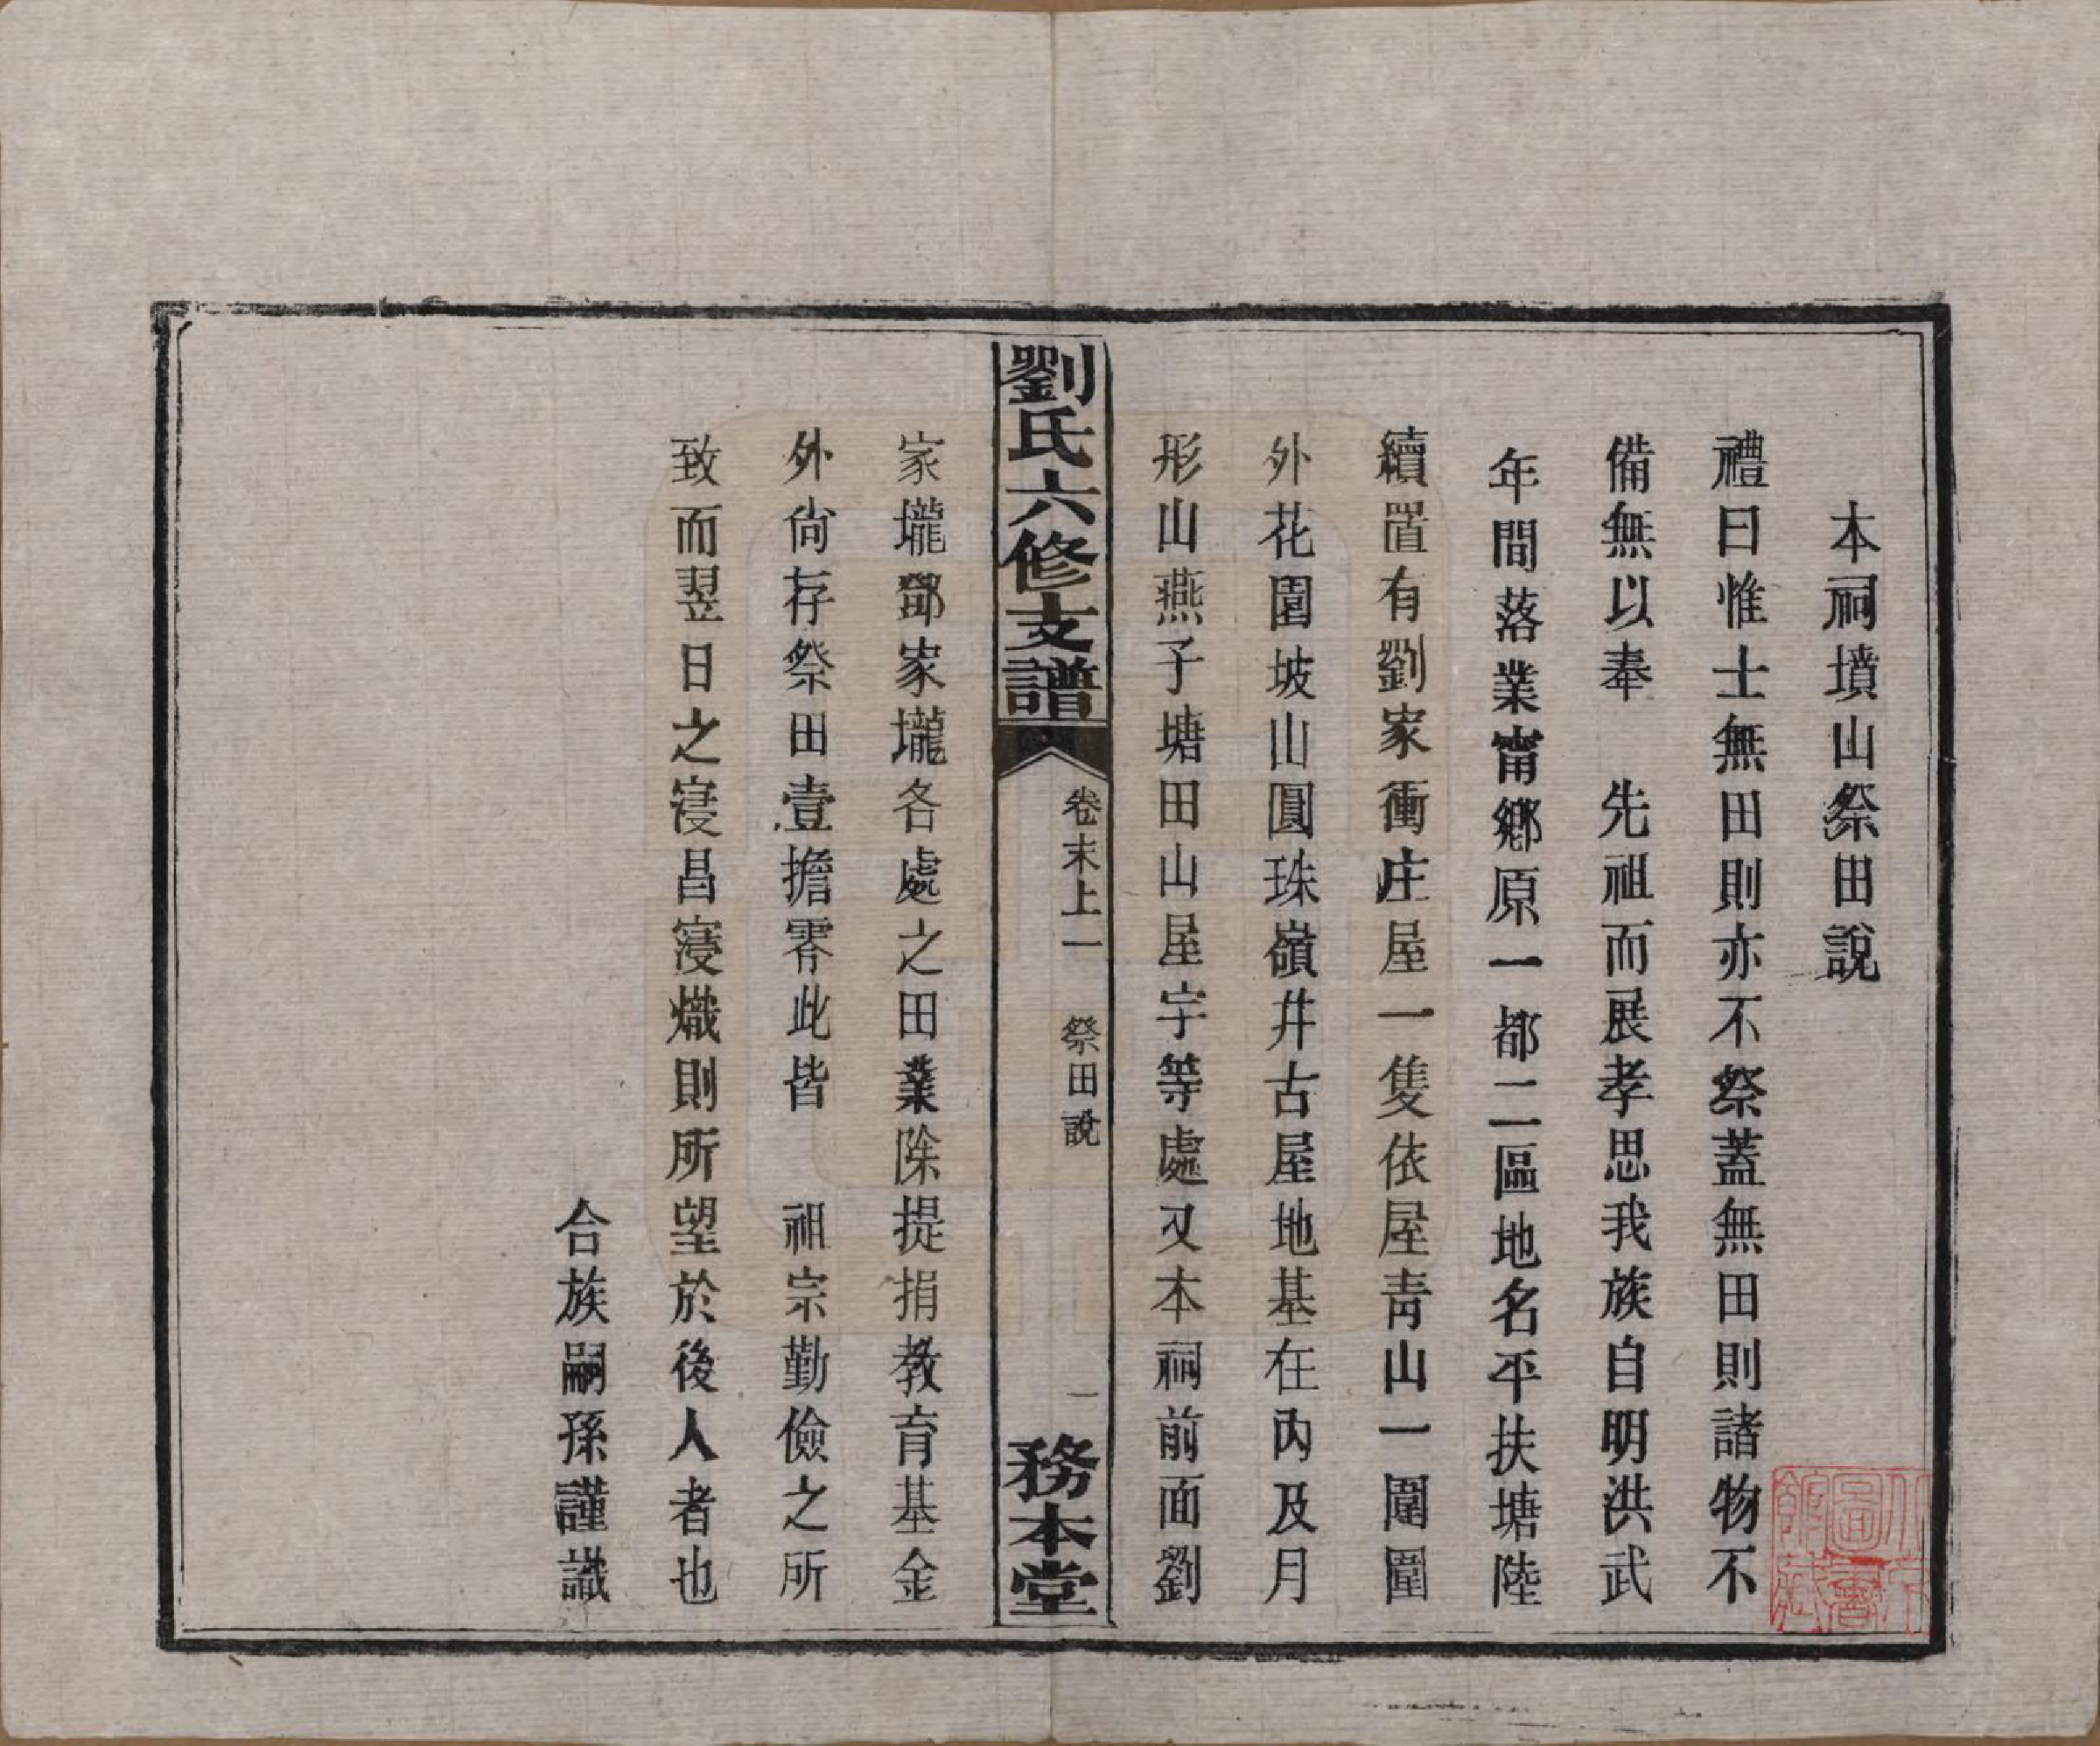 本祠墳山祭田說
禮曰惟士無田則亦不祭蓋無田則諸物不
備無以奉　先祖而展孝思我族自明洪武
年間落業甯鄉原一都二區地名平扶塘陸
續置有劉家衝庄屋一隻依屋青山一圍圍
外花園坡山圓珠嶺井古屋地基在內及月
形山燕子塘田山屋宇等處又本祠前面劉
劉氏六修支譜
卷末上一　祭田說
一
務本堂
家壠鄧家壠各處之田業除提捐教育基金
外尚存祭田壹擔零此皆　祖宗勤儉之所
致而翌日之寖昌寖熾則所望於後人者也
合族嗣孫謹識